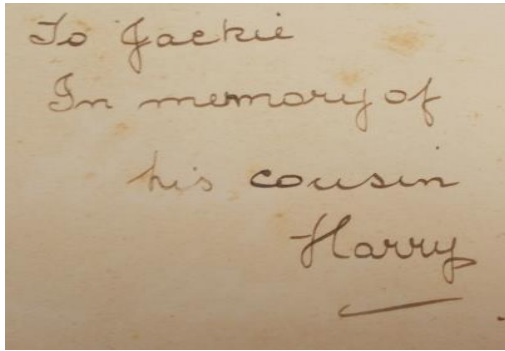 To Jackie
In memory of
his cousin
Harry